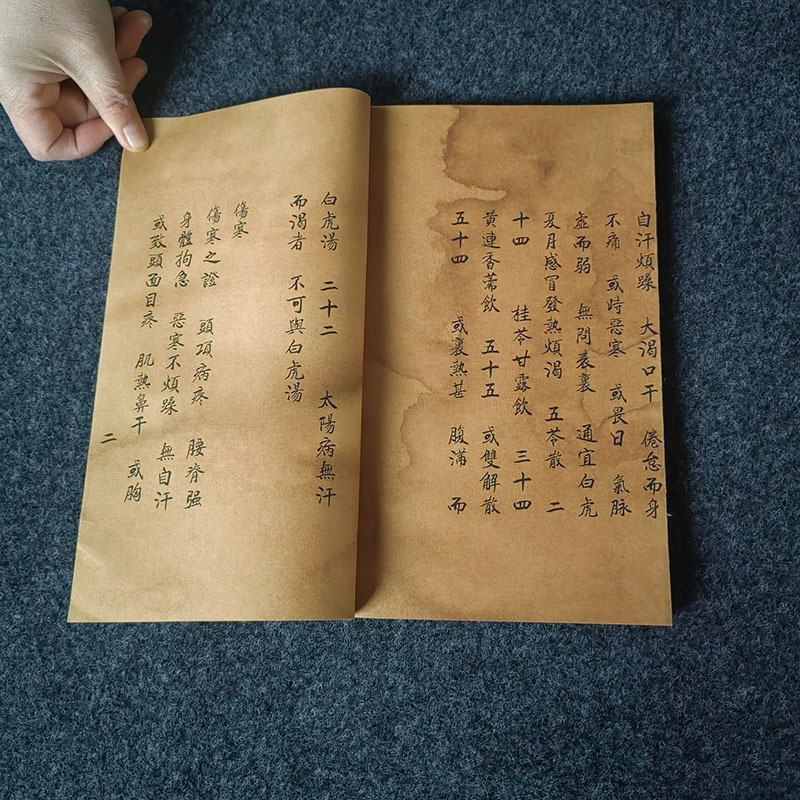 自汗煩躁 大渴口干 倦怠而身
不痛 或時惡寒 或畏日 氣脉
虛而弱 無問表裏 通宜白虎
夏月感冒發熱煩渴 五苓散 二
十四 桂苓甘露飲 三十四
黄連香薷飲 五十五 或雙解散
五十四 或裏熱甚 腹滿 而
白虎湯 二十二 太陽病無汗
而渴者 不可與白虎湯
傷寒
傷寒之證 頭項病疼 腰脊强
身體拘急 惡寒不煩躁 無自汗
或致頭面目疼 肌熱鼻干 或胸
二